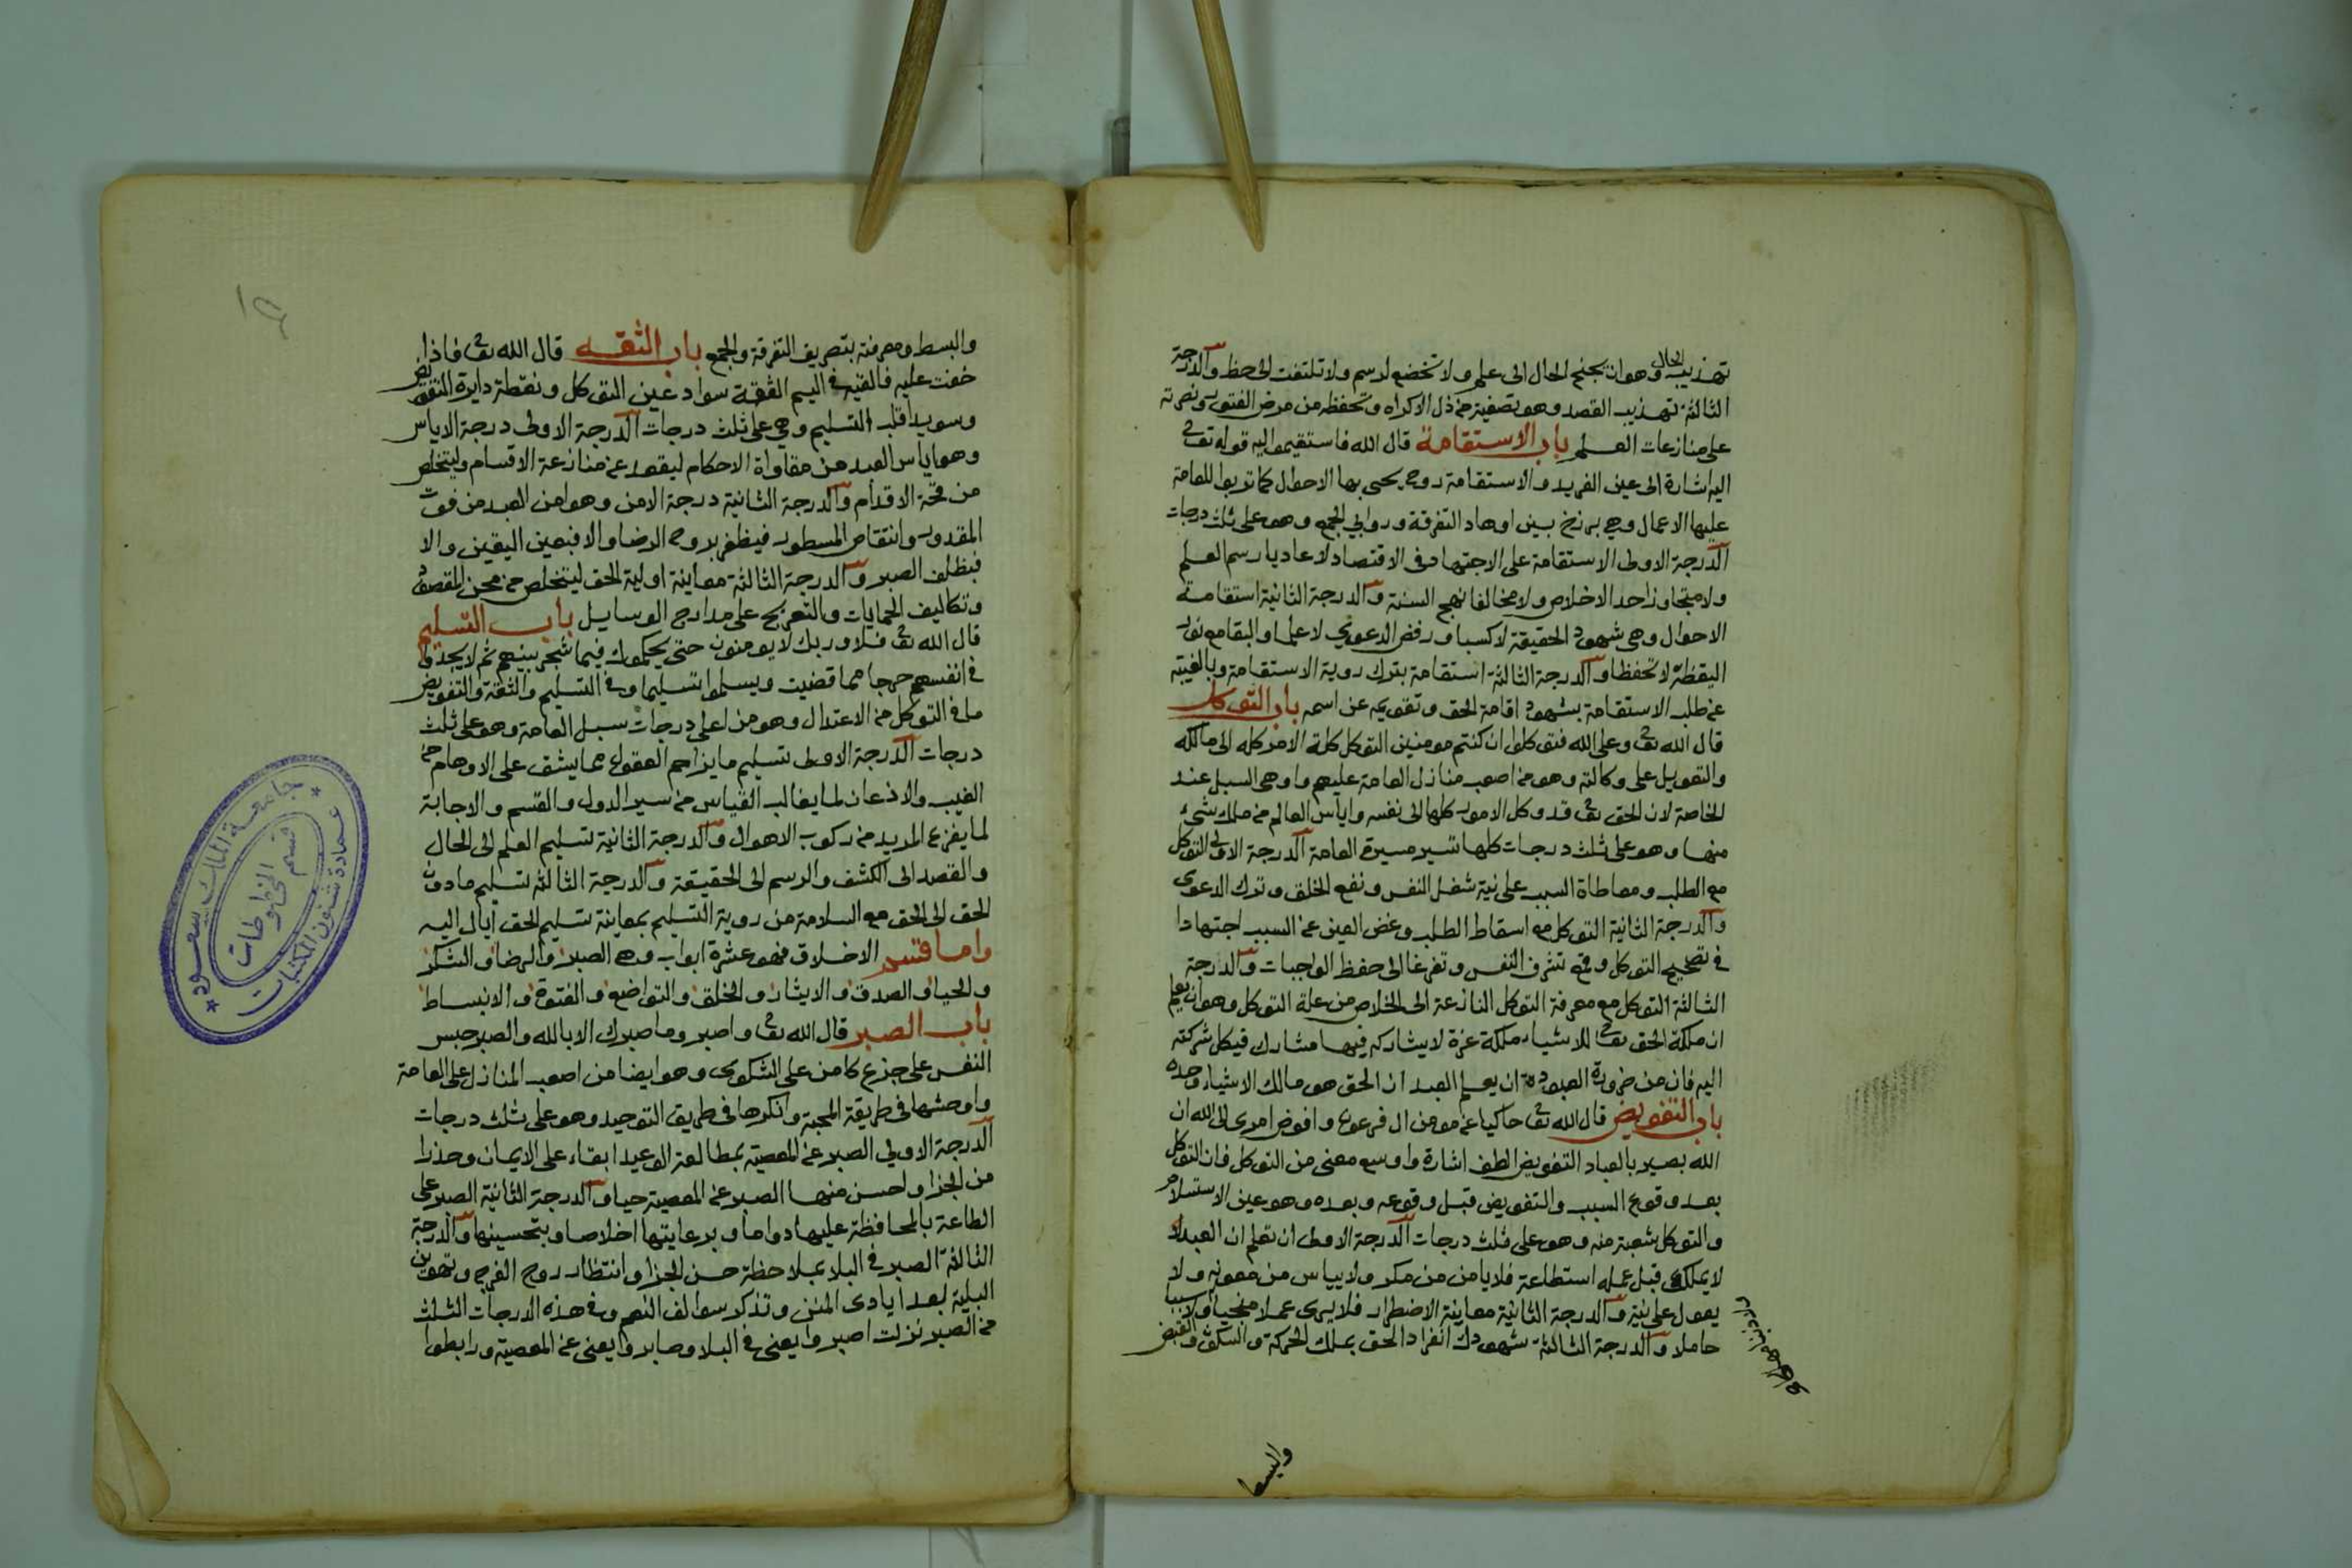 تهذيب الحال وهو ان يجنح الحال الى علم ولا تخضع لرسم ولا تلتفت الى حظ والدرجة
الثالثة تهذيب القصد وهو تصفيته من ذل الاكراه وتحفظه من مرض الفتور ونصرته
على منازعات العلم باب الاستقامة قال الله فاستقيموا اليه قوله تعالى
اليه اشارة الى عين الفريد والاستقامة روح يحيى بها الاحوال كما تربوا للعامة
عليها الاعمال وهي برزخ بين اوهاد التفرقة وروابي الجمع وهو على ثلث درجات
الدرجة الاولى الاستقامة على الاجتهاد في الاقتصاد لا عاديا رسم العلم
ولا متجاوزا حد الاخلاص ولا مخالفا نهج السنة والدرجة الثانية استقامة
الاحوال وهي شهود الحقيقة لا كسبا ورفض الدعوى لا علما والبقا مع نور
اليقظة لا تحفظا والدرجة الثالثة استقامة بترك روية الاستقامة وبالغيبة
عن طلب الاستقامة بشهود اقامة الحق وتقويمه عن اسمه باب التوكل
قال الله تعالى وعلى الله فتوكلوا ان كنتم مومنين التوكل كلة الامر كله الى مالكه
والتعويل على وكالته وهو من اصعب منازل العامة عليهم واوهى السبل عند
الخاصة لان الحق تعالى قد وكل الامور كلها الى نفسه واياس العالم من ملك شيء
منها وهو على ثلث درجات كلها تسير مسيرة العامة الدرجة الاولى التوكل
مع الطلب ومعاطاة السبب على نية شغل النفس ونفع الخلق وترك الدعوى
والدرجة الثانية التوكل مع اسقاط الطلب وغض العين عن السبب اجتهادا
في تصحيح التوكل وقمع تشرف النفس وتفرغا الى حفظ الواجبات والدرجة
الثالثة التوكل مع معرفة التوكل النازعة الى الخلاص من علة التوكل وهو ان يعلم
ان ملكة الحق تعالى للاشياء ملكة عزة لا يشاركه فيها مشارك فيكل شركته
اليه فان من ضرورة العبودة ان يعلم العبد ان الحق هو مالك الاشياء وحده
باب التفويض قال الله تعالى حاكيا عن مومن ال فرعون وافوض امرى الى الله ان
الله بصير بالعباد التفويض الطف اشارة واوسع معنى من التوكل فان التوكل
بعد وقوع السبب والتفويض قبل وقوعه وبعده وهو عين الاستسلام
والتوكل شعبة منه وهو على ثلث درجات الدرجة الاولى ان تعلم ان العبد
لا يملك قبل عمله استطاعة فلا يامن من مكر ولا يياس من معونه ولا
يعول على نية والدرجة الثانية معاينة الاضطرار فلا يرى عملا منجيا ولا سببا
حاملا والدرجة الثالثة شهودك انفراد الحق بملك الحركة والسكون والقبض
والبسط
والبسط ومعرفته بتصريف التفرقة والجمع باب الثقه قال الله تعالى فاذا
خفت عليه فالقيه في اليم الثقة سواد عين التوكل ونقطة دايرة التفويض
وسويدا قلب التسليم وهي على ثلث درجات الدرجة الاولى درجة الاياس
وهو اياس العبد من مقاواة الاحكام ليقعد عن منازعة الاقسام وليتخلص
من قحة الاقدام والدرجة الثانية درجة الامن وهو امن العبد من فوت
المقدور وانتقاص المسطور فيظفر بروح الرضا والا فبعين اليقين والا
فبظلف الصبر والدرجة الثالثة معاينة اولية الحق ليتخلص من محن المقصود
وتكاليف الحمايات والتعريج على مدارج الوسايل باب التسليم
قال الله تعالى فلا وربك لا يومنون حتى يحكموك فيما شجر بينهم ثم لا يجدوا
في انفسهم حرجا مما قضيت ويسلموا تسليما وفي التسليم والثقة والتفويض
ما في التوكل من الاعتدال وهو من اعلى درجات سبل العامة وهو على ثلث
درجات الدرجة الاولى تسليم ما يزاحم العقول مما يشق على الاوهام من
الغيب والاذعان لما يغالب القياس من سير الدول والقسم والاجابة
لما يفزع المريد من ركوب الاهوال والدرجة الثانية تسليم العلم الى الحال
والقصد الى الكشف والرسم الى الحقيقة والدرجة الثالثة تسليم ما دون
الحق الى الحق مع السلامة من روية التسليم بمعاينة تسليم الحق اياك اليه
واما قسم الاخلاق فهو عشرة ابواب وهي الصبر والرضا والشكر
والحيا والصدق والايثار والخلق والتواضع والفتوة والانبساط
باب الصبر قال الله تعالى واصبر وما صبرك الا بالله والصبر حبس
النفس على جزع كامن على الشكوى وهو ايضا من اصعب المنازل على العامة
واوحشها في طريقة المحبة وانكرها في طريق التوحيد وهو على ثلث درجات
الدرجة الاولى الصبر عن المعصية بمطالعة الوعيد ابقاء على الايمان وحذرا
من الجزا واحسن منها الصبر عن المعصية حيا والدرجة الثانية الصبر على
الطاعة بالمحافظة عليها دواما وبرعايتها اخلاصا وبتحسينها والدرجة
الثالثة الصبر في البلا بملاحظة حسن الجزا وانتظار روح الفرج وتهوين
البلية بعد ايادى المنن وتذكر سوالف النعم وفي هذه الدرجات الثلث
من الصبر نزلت اصبروا يعني في البلا وصابروا يعني عن المعصية ورابطوا
جامعة الملك سعود
عمادة شئون المكتبات
قسم المخطوطات